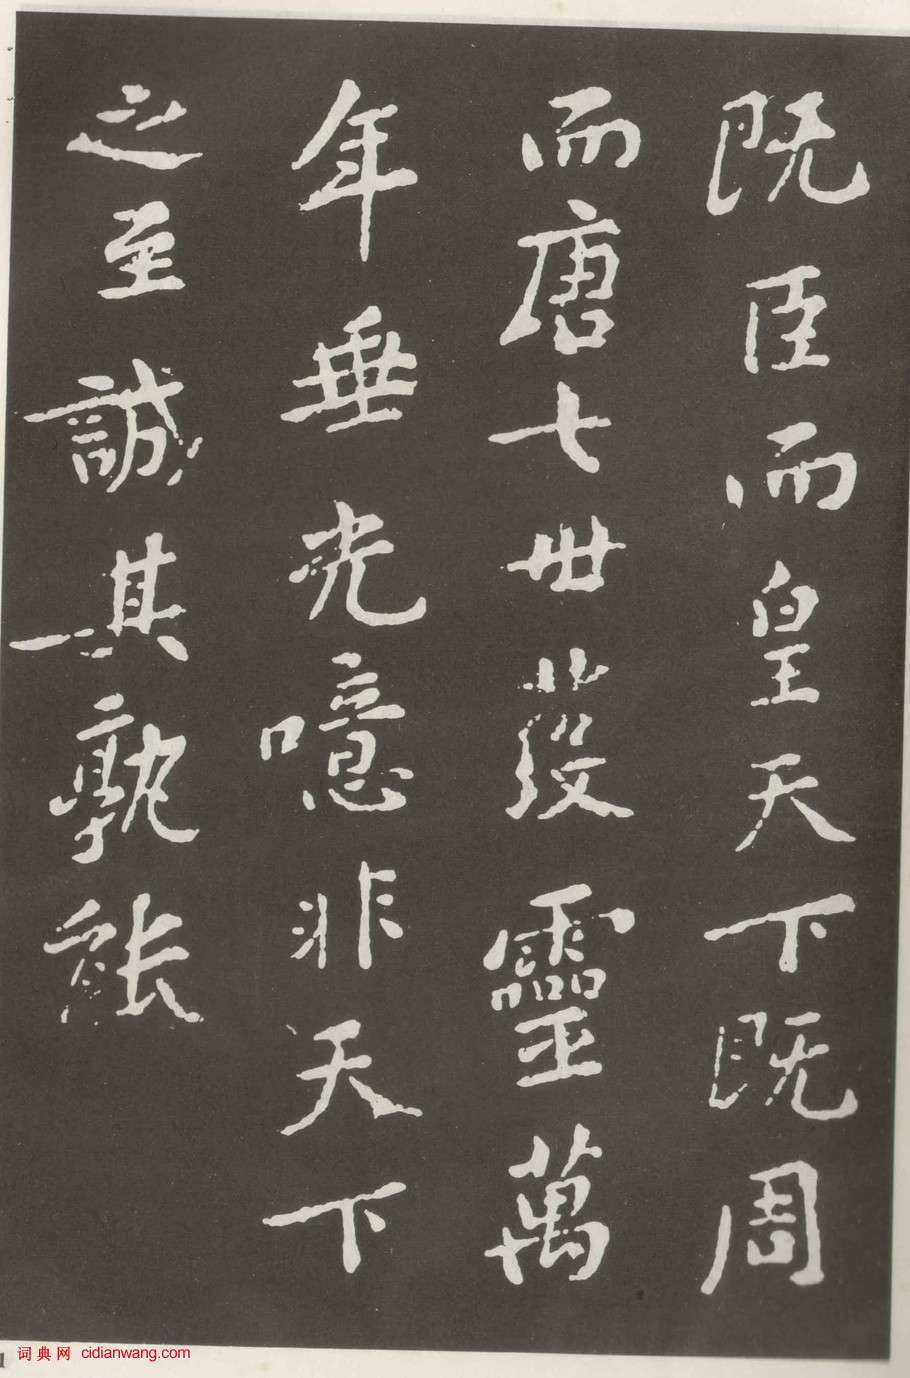 既臣而皇天下既周
而唐七世發靈萬
年垂光噫非天下
之至誠其孰能
1
词典网 cidianwang.com